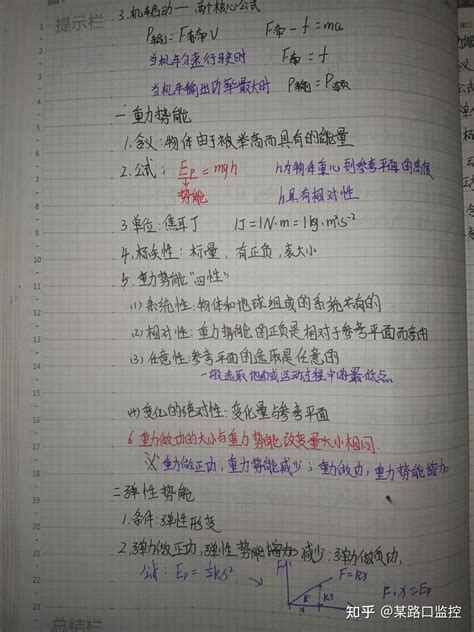 提示栏
3. 机车启动 — 两个核心公式
P输=F牵V F牵-f=ma
当机车匀速行驶时 F牵=f
当机车输出功率最大时 P输=P额
一重力势能
1.含义:物体由于被举高而具有的能量
2.公式: Ep=mgh h为物体重心到参考平面的高度
势能 h具有相对性
3 单位:焦耳 J 1J=1N·m=1kg·m²s⁻²
4. 标矢性:标量,有正负,表大小
5. 重力势能"四性"
(1) 系统性:物体和地球组成的系统共有的
(2) 相对性:重力势能的正负是相对于参考平面而言的
(3) 任意性:参考平面的选取是任意的
一般选取地面或运动过程中的最低点
(4) 变化的绝对性:变化量与参考平面
6 重力做功的大小与重力势能改变量大小相同
重力做正功,重力势能减少;重力做负功,重力势能增加
二弹性势能
1.条件:弹性形变
2.弹力做正功,弹性势能减少:弹力做负功,
公式: Ep=½kx² F F=kx
kx
x
总结栏
知乎 @某路口监控